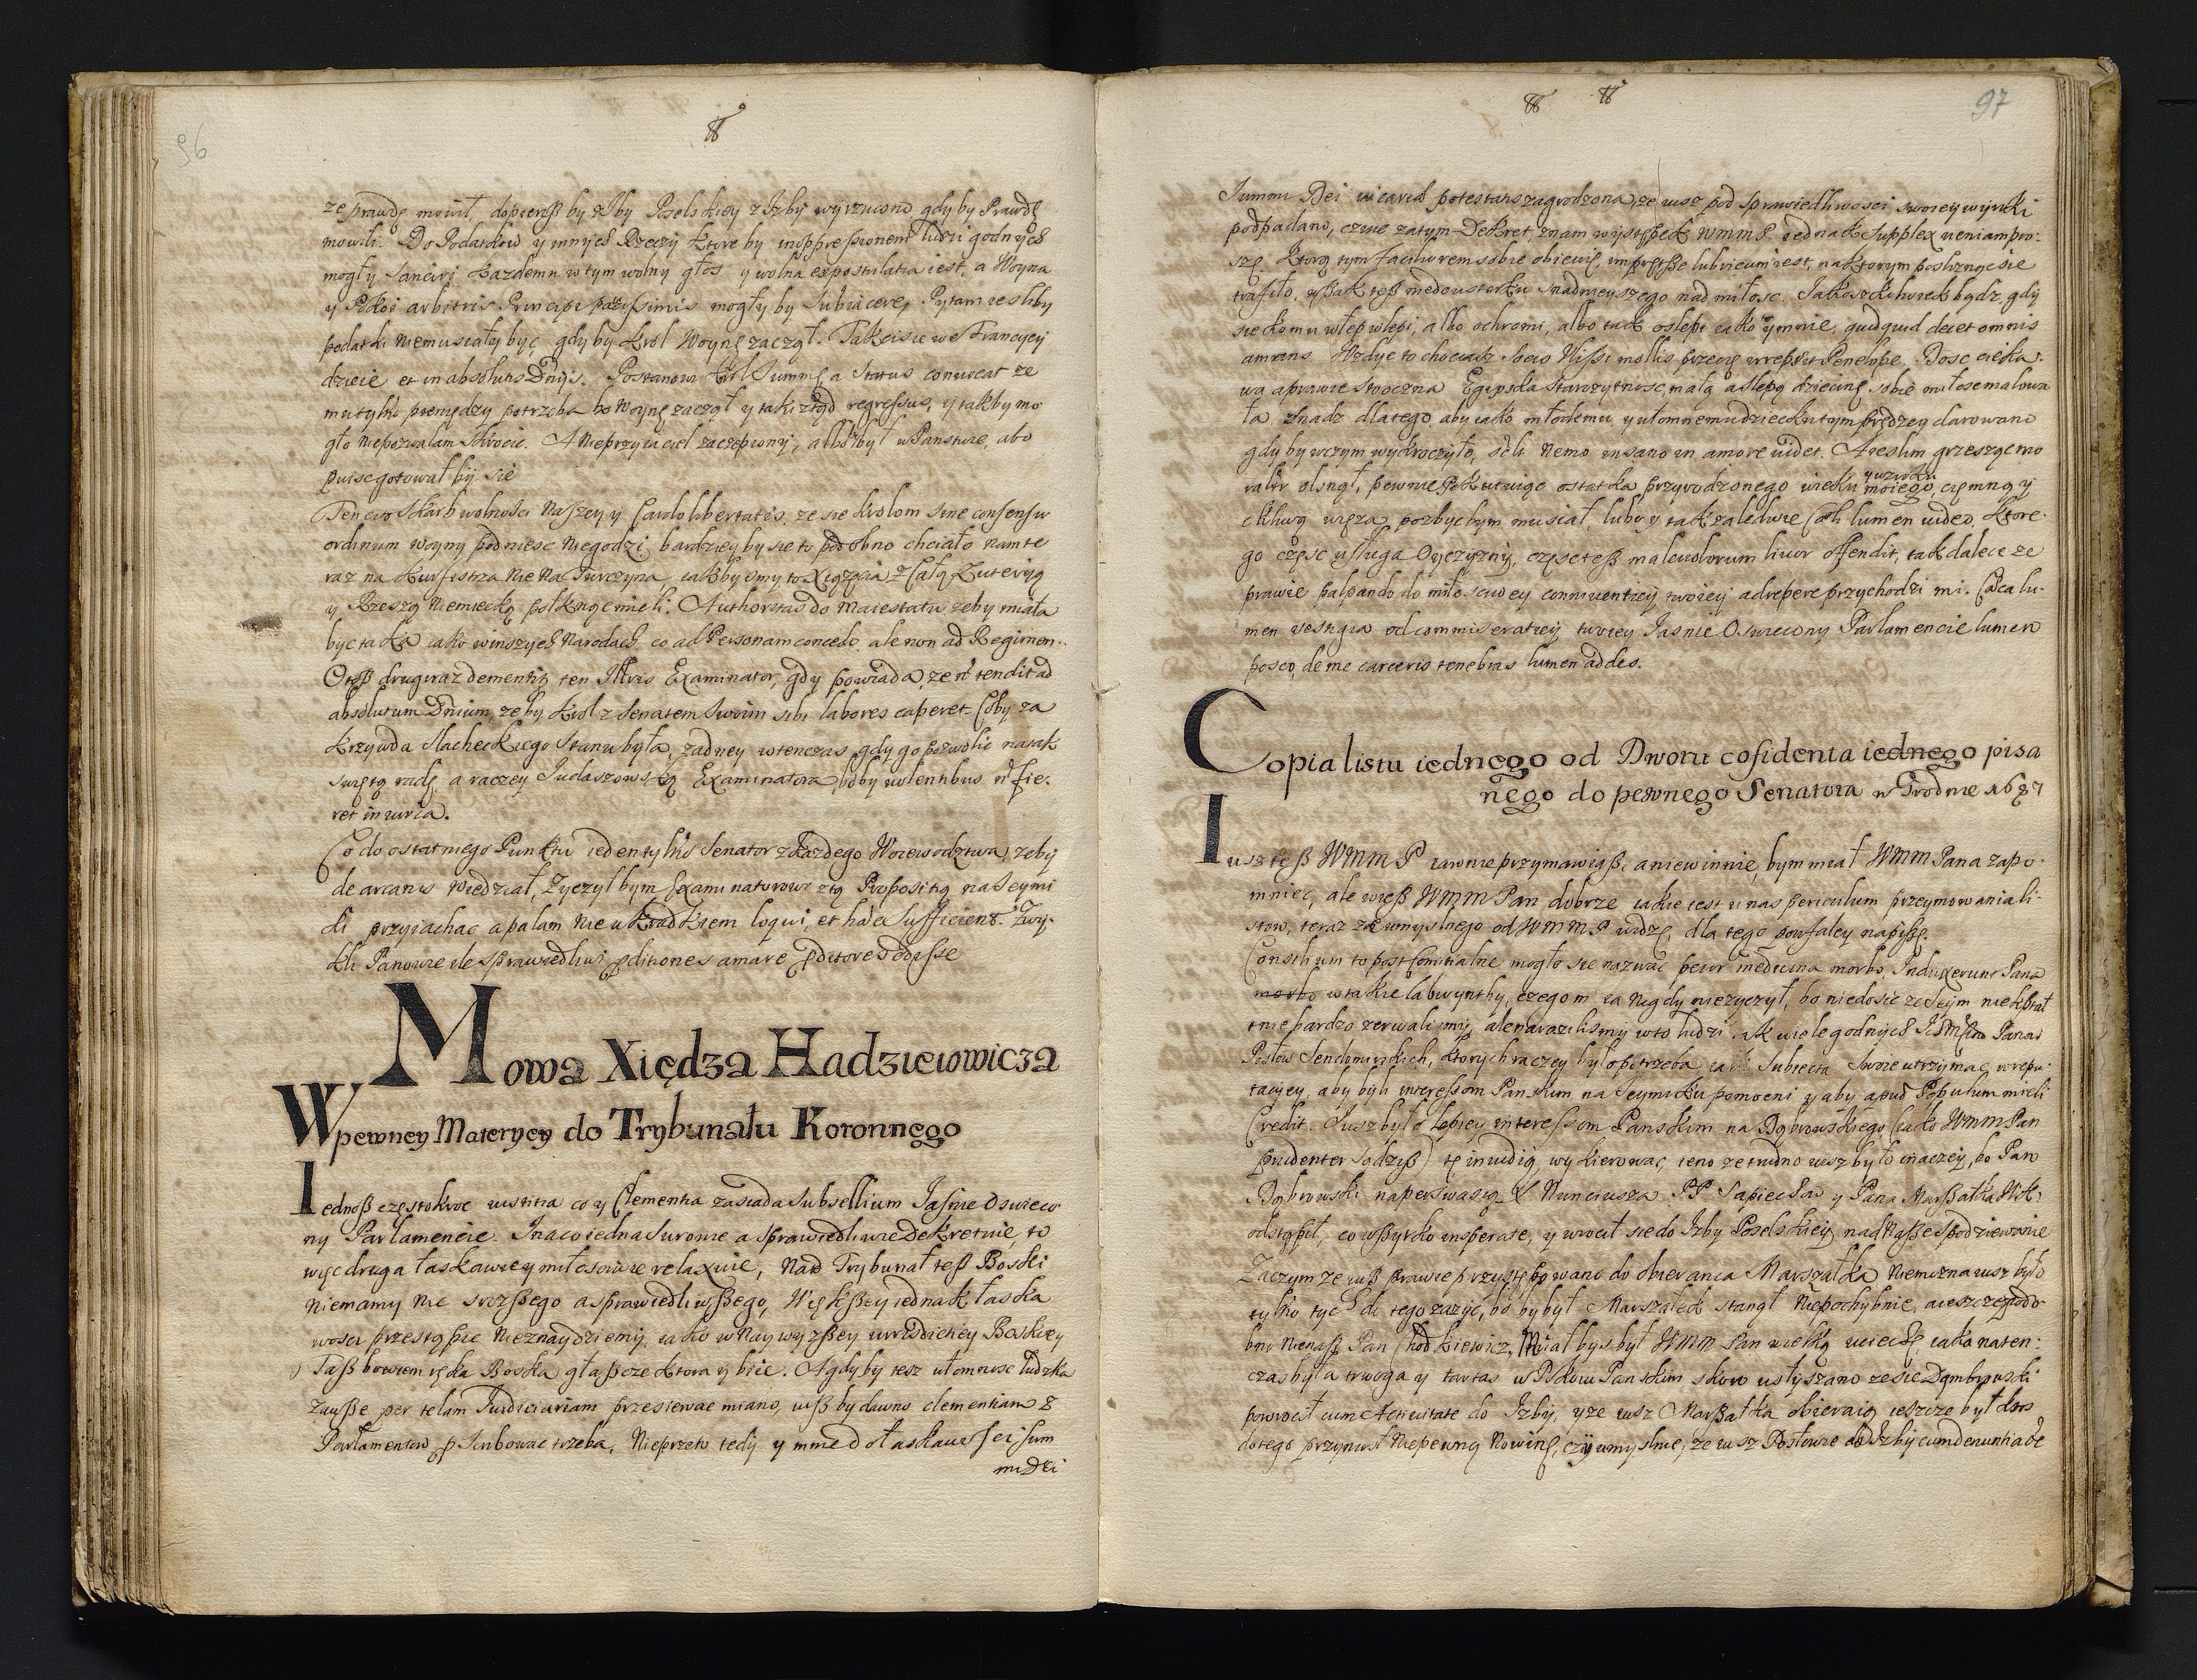 96
ze prawdę mowił, dopieroß by z Izby Poselskiey z Izby wyrzucono gdy by Prawdę
mowili. Do Podatkow y innych Rzeczy ktore by inoppressionem ludzi godnych
mogły sanciri kazdemu w tym wolny głos y wolna expostulatia iest, a Woyna
y Pokoi arbitris Principi potissimis mogły by subiacere, Pytam iesliby
podatki niemusiały być gdyby Krol Woynę zaczął. Tak cisie we Francyey
dzieie et in absolutis Dnijs. Postanowi Krol Summę a Status convocat ze
mu tylko pieniędzy potrzeba bo Woynę zaczął y taki ztąd regressus, y takby mo
gło niepozwalam skrocić. A Nieprzyiaciel zaczepiony, albo był w Panstwie, abo
gotował by sie
Ten cios Skarb wolnosci Naszey y libertatis, ze sie krolom sine consensu
ordinum woyny podniesc niegodzi, bardziey by sie to podobno chciało nam te
raz na Kurfistrza nie na Turczyna, iakby smy to Xiążęcia z całą Luteriją
y Rzeszą Niemiecką połknąć mieli. Authoritas do Maiestatu zeby miała
byc taka iako w inszych Narodach co ad Personam concedo, ale non ad Regimen.
Otoß drugi raz dementis ten Illris Examinator, gdy powiada, ze ñ tendit ad
absolutum Dnium, zeby Krol z Senatem Swoim sibi labores caperet. Coby za
krzywda slacheckiego Stanu była, zadney wtenczas gdy go pozwolić na tak
swiętą radę, a raczey Judaszowską Examinatora, boby volentibus ñ fie:
ret iniuria.
Co do ostatniego Punktu ieden tylko Senator z kazdego Woiewodztwa, zeby
de arcanis wiedział, Zyczył bym Examinatorowi z tą Propositią na Seymi
ki przyiachac a palam nie ukradkiem loqui, et haec sufficiens. Zwy:
kli Panowie ile sprawiedliwi proditiones amare proditores odisse
Mowa Xiędza Hadziewicza
W pewney Materyey do Trybunału Koronnego
Iednoß częstokroc iustitia co y Clementia zasiada Subsellium Iasnie Oswieco
ny Parlamencie. Inaco iedna surowie a sprawiedliwie Dekretuie, to
więc druga łaskawie y miłosiernie relaxuie, Nad Trybunał teß Boski
niemamy nic srozßego a sprawiedliwßego, Więkßey iednak łaska
wosci przestąpic nieznaydziemy, iako w Naywyzßey iurisdictiey Boskiey
Taß bowiem ręka Boska głaßcze ktora y biie. A gdyby tesz ułomnosc ludzka
zawße per telam Iudiciariam przesiewac miano, iuß by dawno clementiam z
Parlamentow trzeba, Nieprzeto tedy y mnie do łaskawosci sum
mi Dei
97
Summi Dei vicaria potestas zagrodzona, ze iusz pod sprawiedliwosci swoiey wyroki
podpadano, czuie zatym Dekret, znam występek WMM P iednak supplex veniam pro:
szę. Ktorą tym faciliorem sobie obiecuię, impręße lubricum iest, na ktorym posliznąc sie
trafiło, wßak teß niedousterku snadnieyszego nad miłosc. Iakoszkolwiek bądz, gdy
sie komu w łep wlepi, albo ochromi, albo tak oslepi iako y mnie, quidquid decet omnis
amans. Wzdyc to chociasz mollis przecię irrepsit Penelope. Dosc cieka:
wa a prawie stooczna Egipska starozytnosc, małą a slepą dziecinę sobie miłosc malowa
ła snadz dlatego, aby iako młodemu y ułomnemu dziecku tym prędzey darowano
gdy by w czym wykroczyło, scili nemo in sano in amore videt. A ieslim grzesząc mo
raliter olsnął, pewnie Pokutuiąc ostatka przyrodzonego wieku moiego, ciemną y
y wzroku
ckliwą więzą pozbyc bym musiał, luboy tak zaledwie Coeli lumen video, ktore:
go częsc usługa Oyczyzny, częsc teß malevolorum livor offendit, tak dalece ze
prawie palpando do miłosciwey conniventiey twoiey adrepere przychodzi mi. Caeca lu:
men vestigia od commiseratiey twoiey Jasnie Oswiecony Parlamencie lumen
posco, deme carceris tenebras lumen addes.
Copia listu iednego od Dworu cofidenta iednego pisa
nego do pewnego Senatora w Grodnie 1687
Iusz teß WMM P iawnie przymawiaß, a niewinnie, bym miał WMM Pana zapo:
mniec, ale wieß WMM Pan dobrze iakie iest u nas periculum przeymowania li:
stow, teraz ze umyslnego od WMM P widzę, dla tego poufaley napißę.
Consilium to post Comitialne mogło sie nazwac peior medicina morbo. Induxerunt Pana
morbo w takie labirynthy, czego m ia nigdy nie zyczył, bo niedosic ze Seym nie kßtał
tnie bardzo zerwalismy, ale narazilismy wto ludzi tak wiele godnych Panow
Posłow Sendomirskich, ktorych raczey było potrzeba iako subiecta swoie utrzymac w repu:
tacyey, aby byli interessom Panskim na Seymiku pomocni y aby apud Populum mieli
Credit. Iusz było lepiey interessom Panskim na Dąbrowskiego (iako WMM Pan
prudenter sądziß) tę invidią wykierowac, ieno ze trudno iusz było inaczey, bo Pan
Dąbrowski na perswasią X Nunciusza PP Sapiehow y Pana Marßałka W.K.
odstąpił, co wßytko insperate, y wrocił sie do Izby Poselskiey nad Naße spodziewanie
Zaczym ze iuß prawie przystępowano do obierania Marszałka Niemozna iusz było
tylko tych do tego zazyć, bo by był Marszałek stanął niepochybnie, a ieszcze podo
bno nienaß Pan Chodkiewicz, Miałbys był WMM Pan wielką uciechę, iaka naten:
czas była trwoga y tartas w Pokoiu Panskim skoro usłyszano ze sie Dąmbrowski
powrocił cum Activitate do Izby, y ze iusz Marßałka obieraią ieszcze był ktos
do tego przyniosł niepewną nowinę, czy umyslnie, ze iusz Posłowie do Izby cum denuntiatie